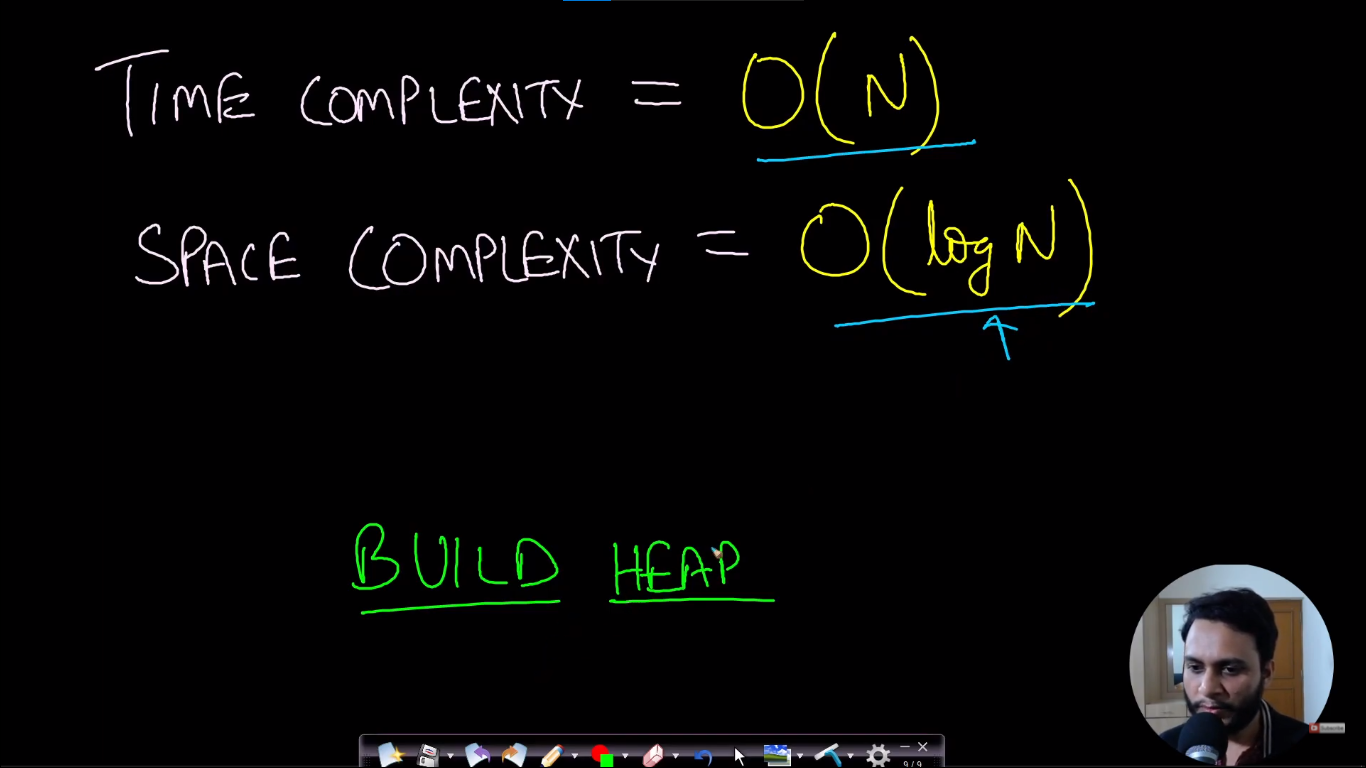 TIME COMPLEXITY = O(N)
SPACE COMPLEXITY = O(log N)
BUILD HEAP
Subscribe
9/9